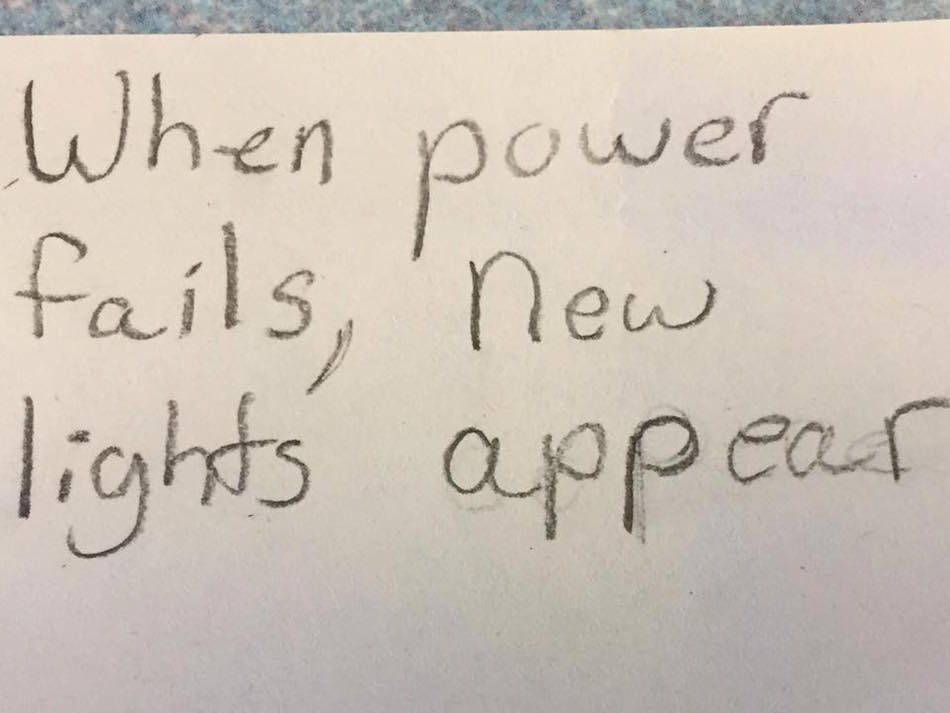 When power
fails, New
lights appear